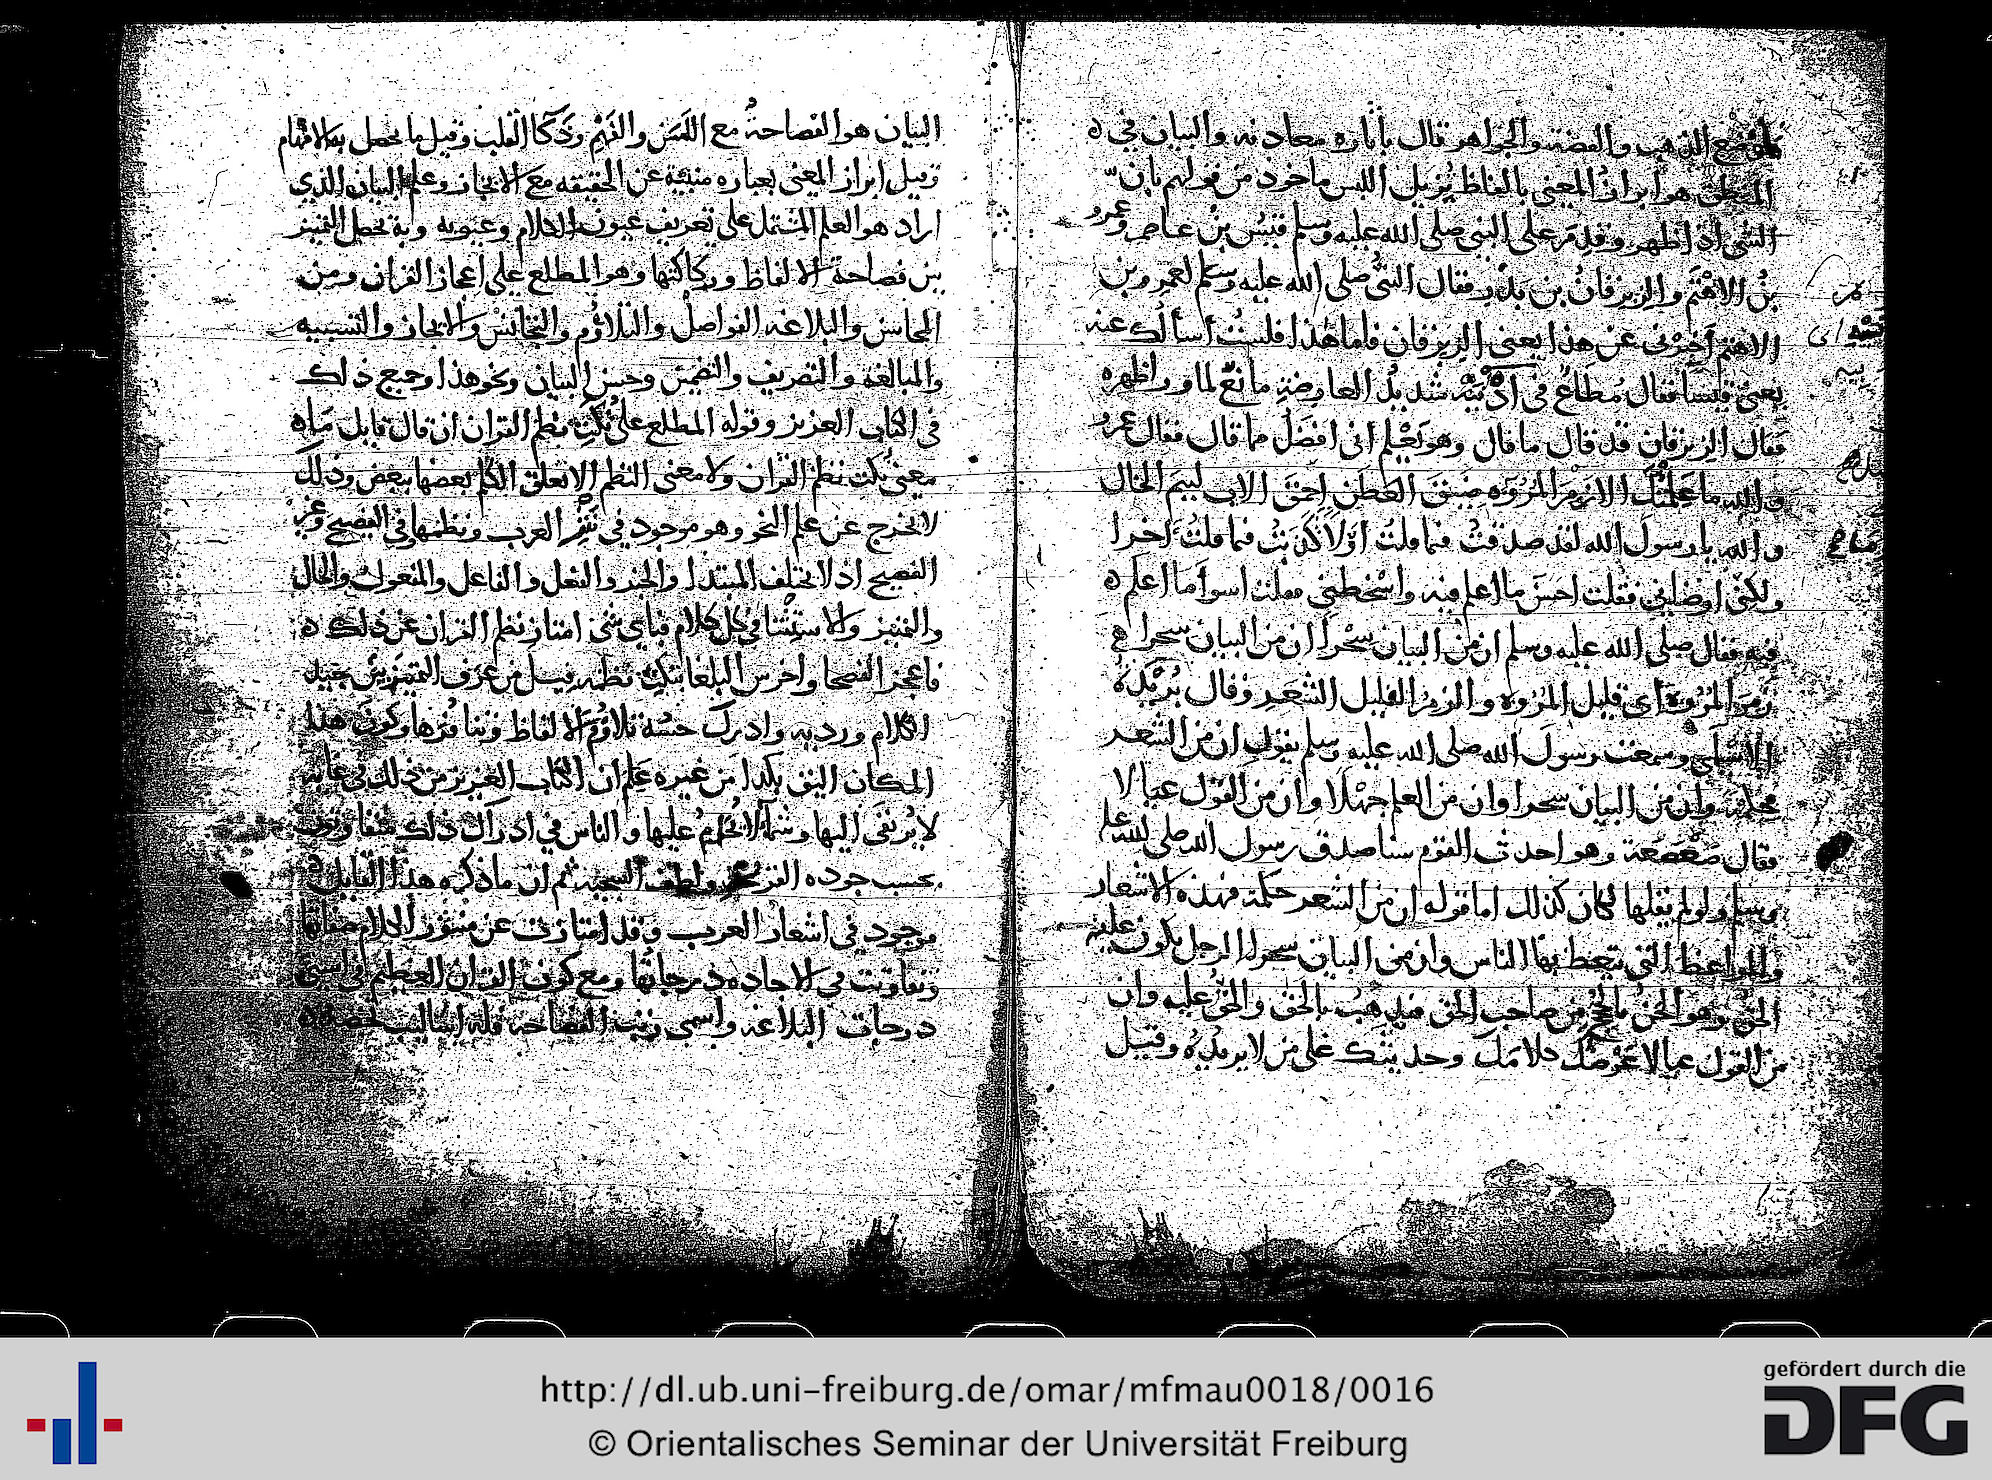 موضع الذهب والفضة والجواهر قال باثاره معادنه والبيان في
المنطق هو ابراز المعنى بالفاظ يزيل اللبس ماخوذ من قولهم بان
الشي اذا ظهر وقدم على النبي صلى الله عليه وسلم قيس بن عاصم وعمرو
بن الاهتم والزبرقان بن بدر فقال النبي صلى الله عليه وسلم لعمرو بن
الاهتم اخبرني عن هذا يعني الزبرقان فاما هذا فلست أسألك عنه
يعني قيسا فقال مطاع في ادنيه شديد العارضة مانع لما ورا ظهره
فقال الزبرقان قد قال ما قال وهو يعلم اني افضل مما قال فقال عمرو
والله ما علمتك الا زمر المروه ضيق العطن احمق الاب ليم الخال
والله يا رسول الله لقد صدقت فيما قلت اولا وكذبت فيما قلت اخرا
ولكني ارضاني فقلت احسن ما اعلم فيه واسخطني فقلت اسوأ ما اعلم
فيه فقال صلى الله عليه وسلم ان من البيان سحرا ان من البيان سحرا
زمر المروة اي قليل المروه والزمر القليل الشعر وقال بريدة
الاسلمي سمعت رسول الله صلى الله عليه وسلم يقول ان من الشعر
حكمة وان من البيان سحرا وان من العلم جهلا وان من القول عيالا
فقال صعصعة وهو احدث القوم سنا صدق رسول الله صلى الله عليه
وسلم ولو لم يقلها كان كذلك اما قوله ان من الشعر حكمة فهذه الاشعار
والمواعظ التي يتعظ بها الناس وان من البيان سحرا الرجل يكون عليه
الحق وهو الحن بالحجج من صاحب الحق فيذهب بالحق والحق عليه وان
من القول عيالا عرضك كلامك وحديثك على من لا يريده وقيل
البيان هو الفصاحة مع اللسن والفهم وذكا القلب وقيل ما يحصل به الافهام
وقيل ابراز المعنى بعباره منبئة عن الحقيقه مع الايجاز وعلم البيان الذي
اراد هو العلم المشتمل على تعريف عيون الكلام وعيوبه وبه يحصل التمييز
بين فصاحة الالفاظ وركاكتها وهو المطلع على اعجاز القران ومن
المحاسن والبلاغه الفواصل والتلاؤم والتجانس والايجاز والتشبيه
والمبالغه والتصريف والتضمين وحسن البيان ونحو هذا وجميع ذلك
في الكتاب العزيز وقوله المطلع على نكت نظم القران ان قال قايل ما
معنى نكت نظم القران ولا معنى النظم الا تعلق الكلم بعضها ببعض وذلك
لا يخرج عن علم النحو وهو موجود في نثر العرب ونظمها في الفصيح وغير
الفصيح اذ لا يختلف المبتدا والخبر والفعل والفاعل والمفعول والحال
والتمييز والاستثنا في كل كلام فباي شي امتاز نظم القران عن ذلك
فاعجز الفصحا واخرس البلغا بنكت نظمه قيل من عرف التمييز بين جيد
الكلام ورديه وادرك حسنه تلاؤم الالفاظ وتنافرها وكون هذا
المكان اليق بكذا من غيره علم ان الكتاب العزيز من ذلك في غايه
لا يرتقى اليها وسما لا يحام عليها والناس في ادراك ذلك متفاوتون
بحسب جوده ولطف السجيه ثم ان ما ذكره هذا القايل
موجود في اشعار العرب وقد امتازت عن منثور الكلام صفاتها
وتفاوتت في الاجاده درجاتها ومع كون القران العظيم في اسنى
درجات البلاغه واسمى رتب الفصاحه فله اساليب
http://dl.ub.uni-freiburg.de/omar/mfmau0018/0016
© Orientalisches Seminar der Universität Freiburg
gefördert durch die
DFG